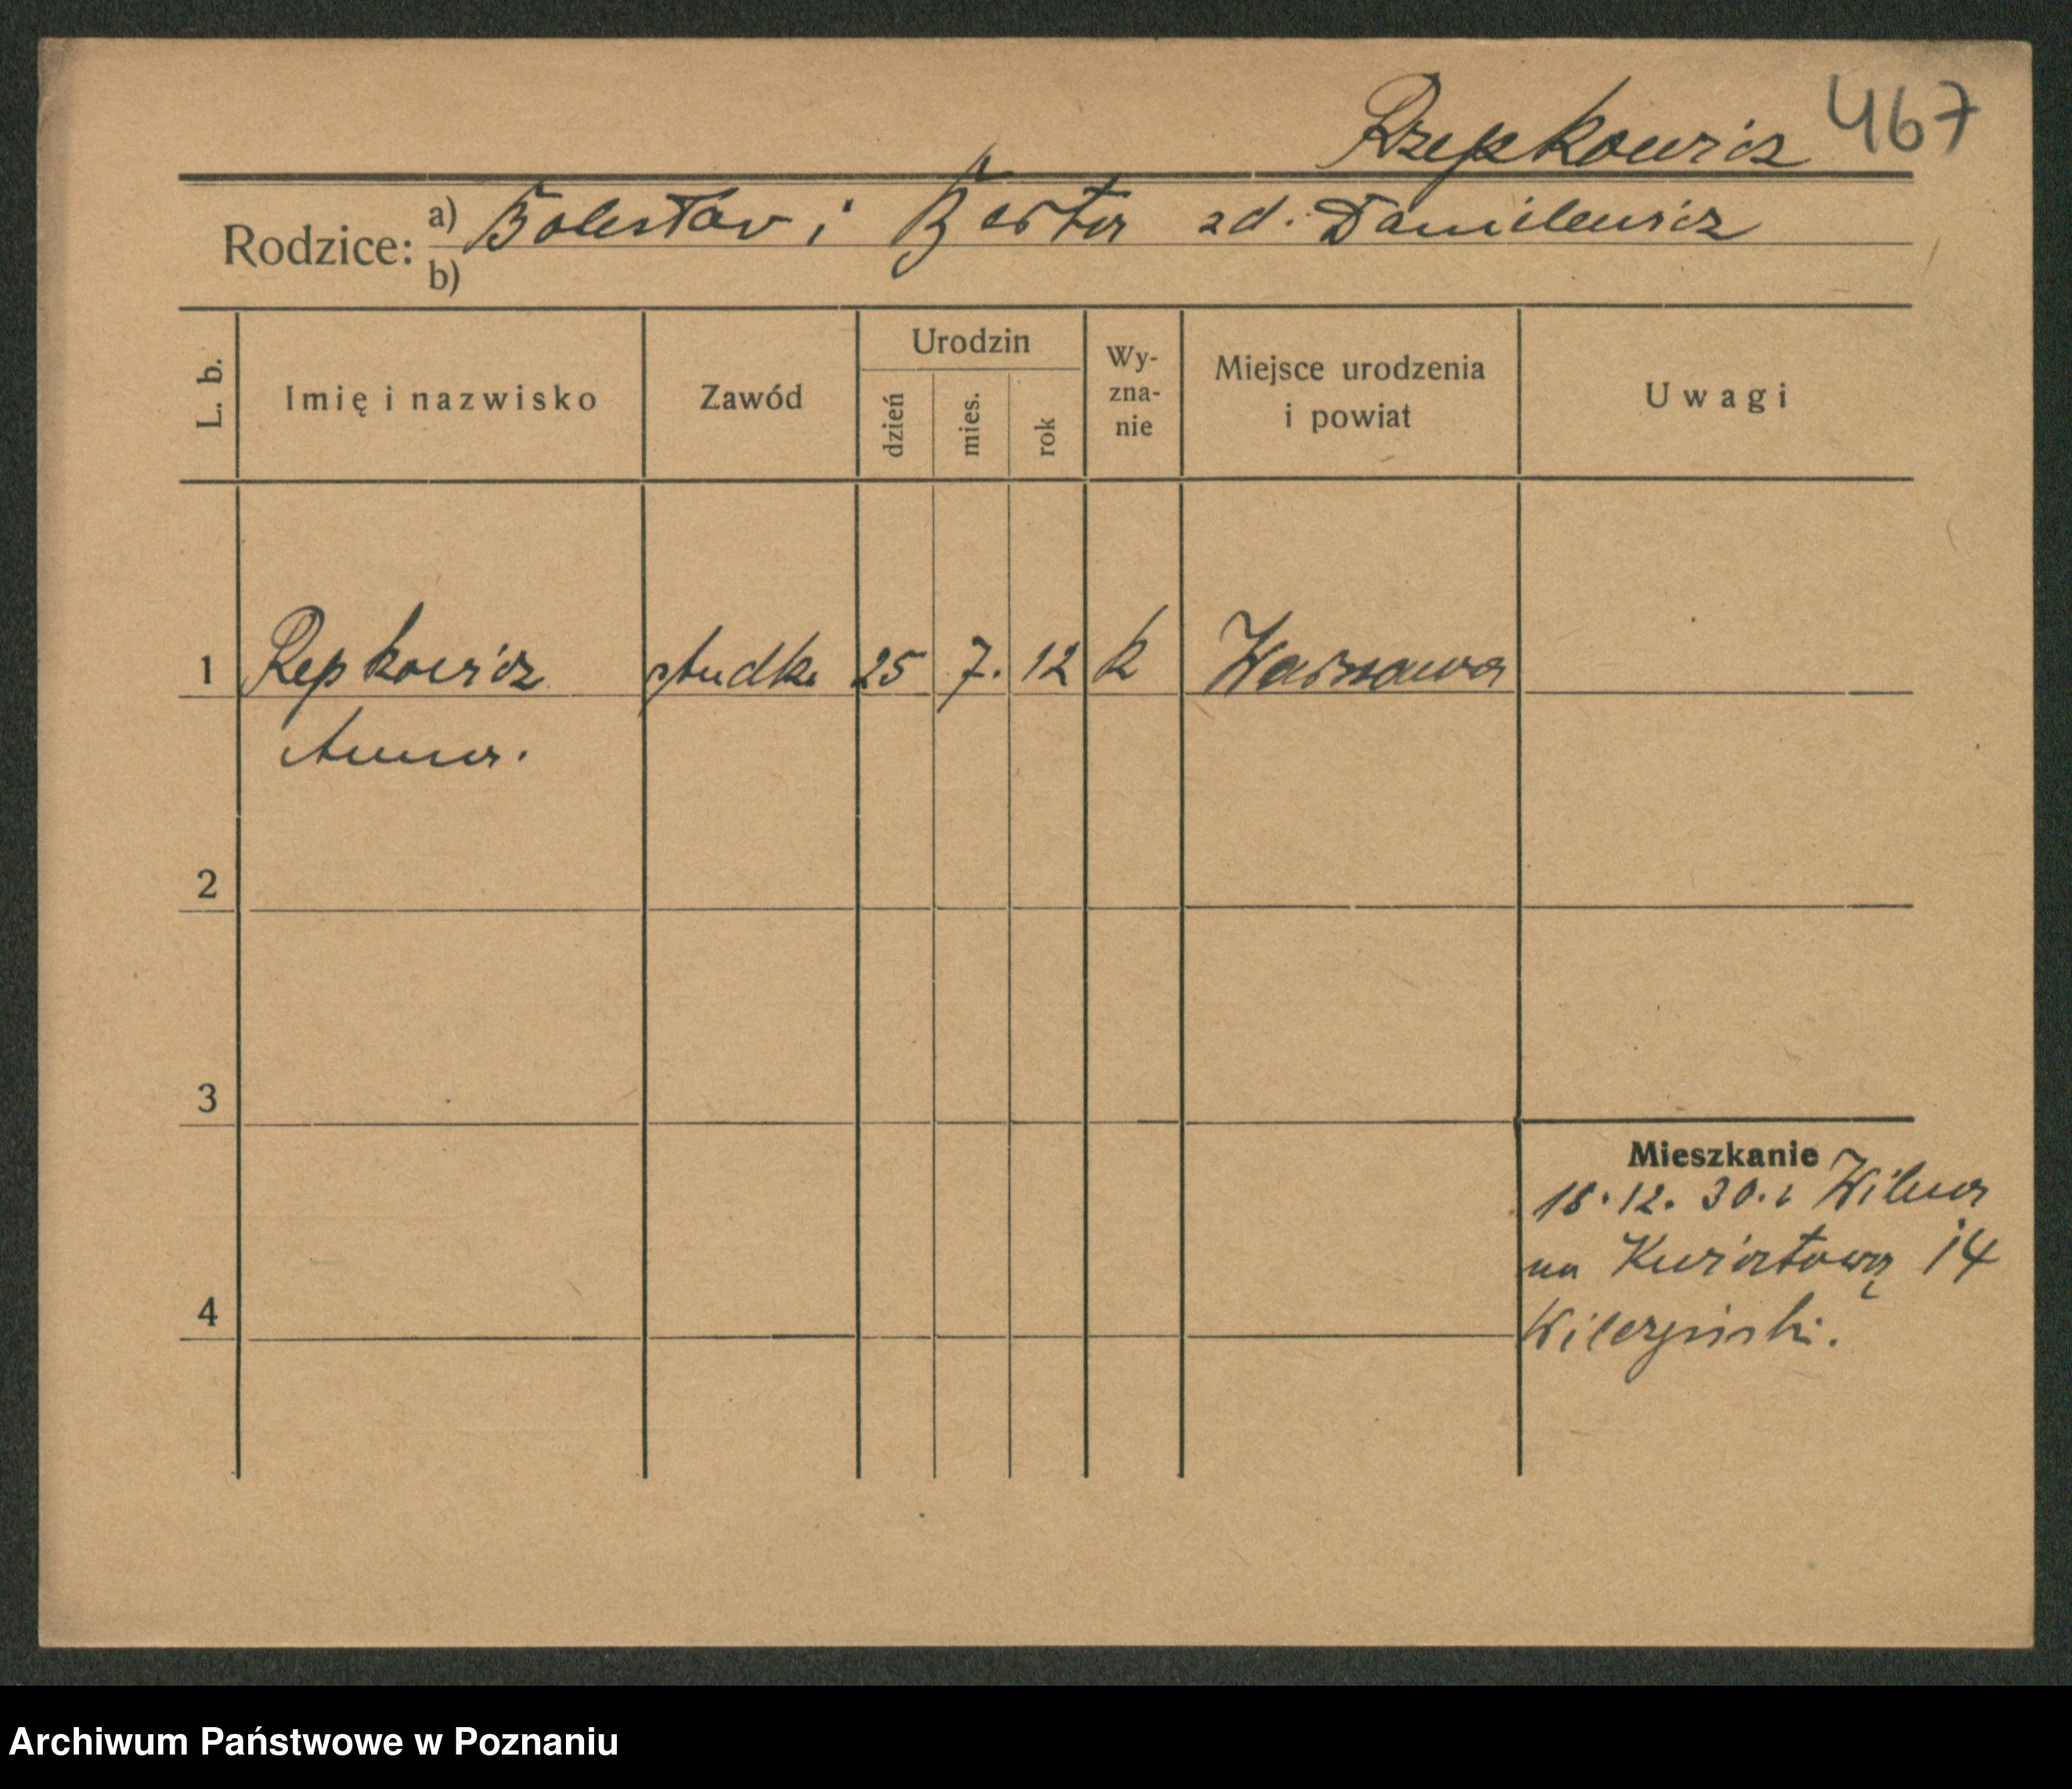 Rzepkowicz 467
Rodzice: a) Bolesław i Berta zd. Danilewicz
b)
L. b. Imię i nazwisko Zawód Urodzin dzień mies. rok Wy-zna-nie Miejsce urodzenia i powiat Uwagi
1 Repkowicz studtk. 25 7. 12 k Warszawa
Anna.
2
3
Mieszkanie
18.12.30. z Wilna
na Kwiatową 14
4
Wilczyński.
Archiwum Państwowe w Poznaniu